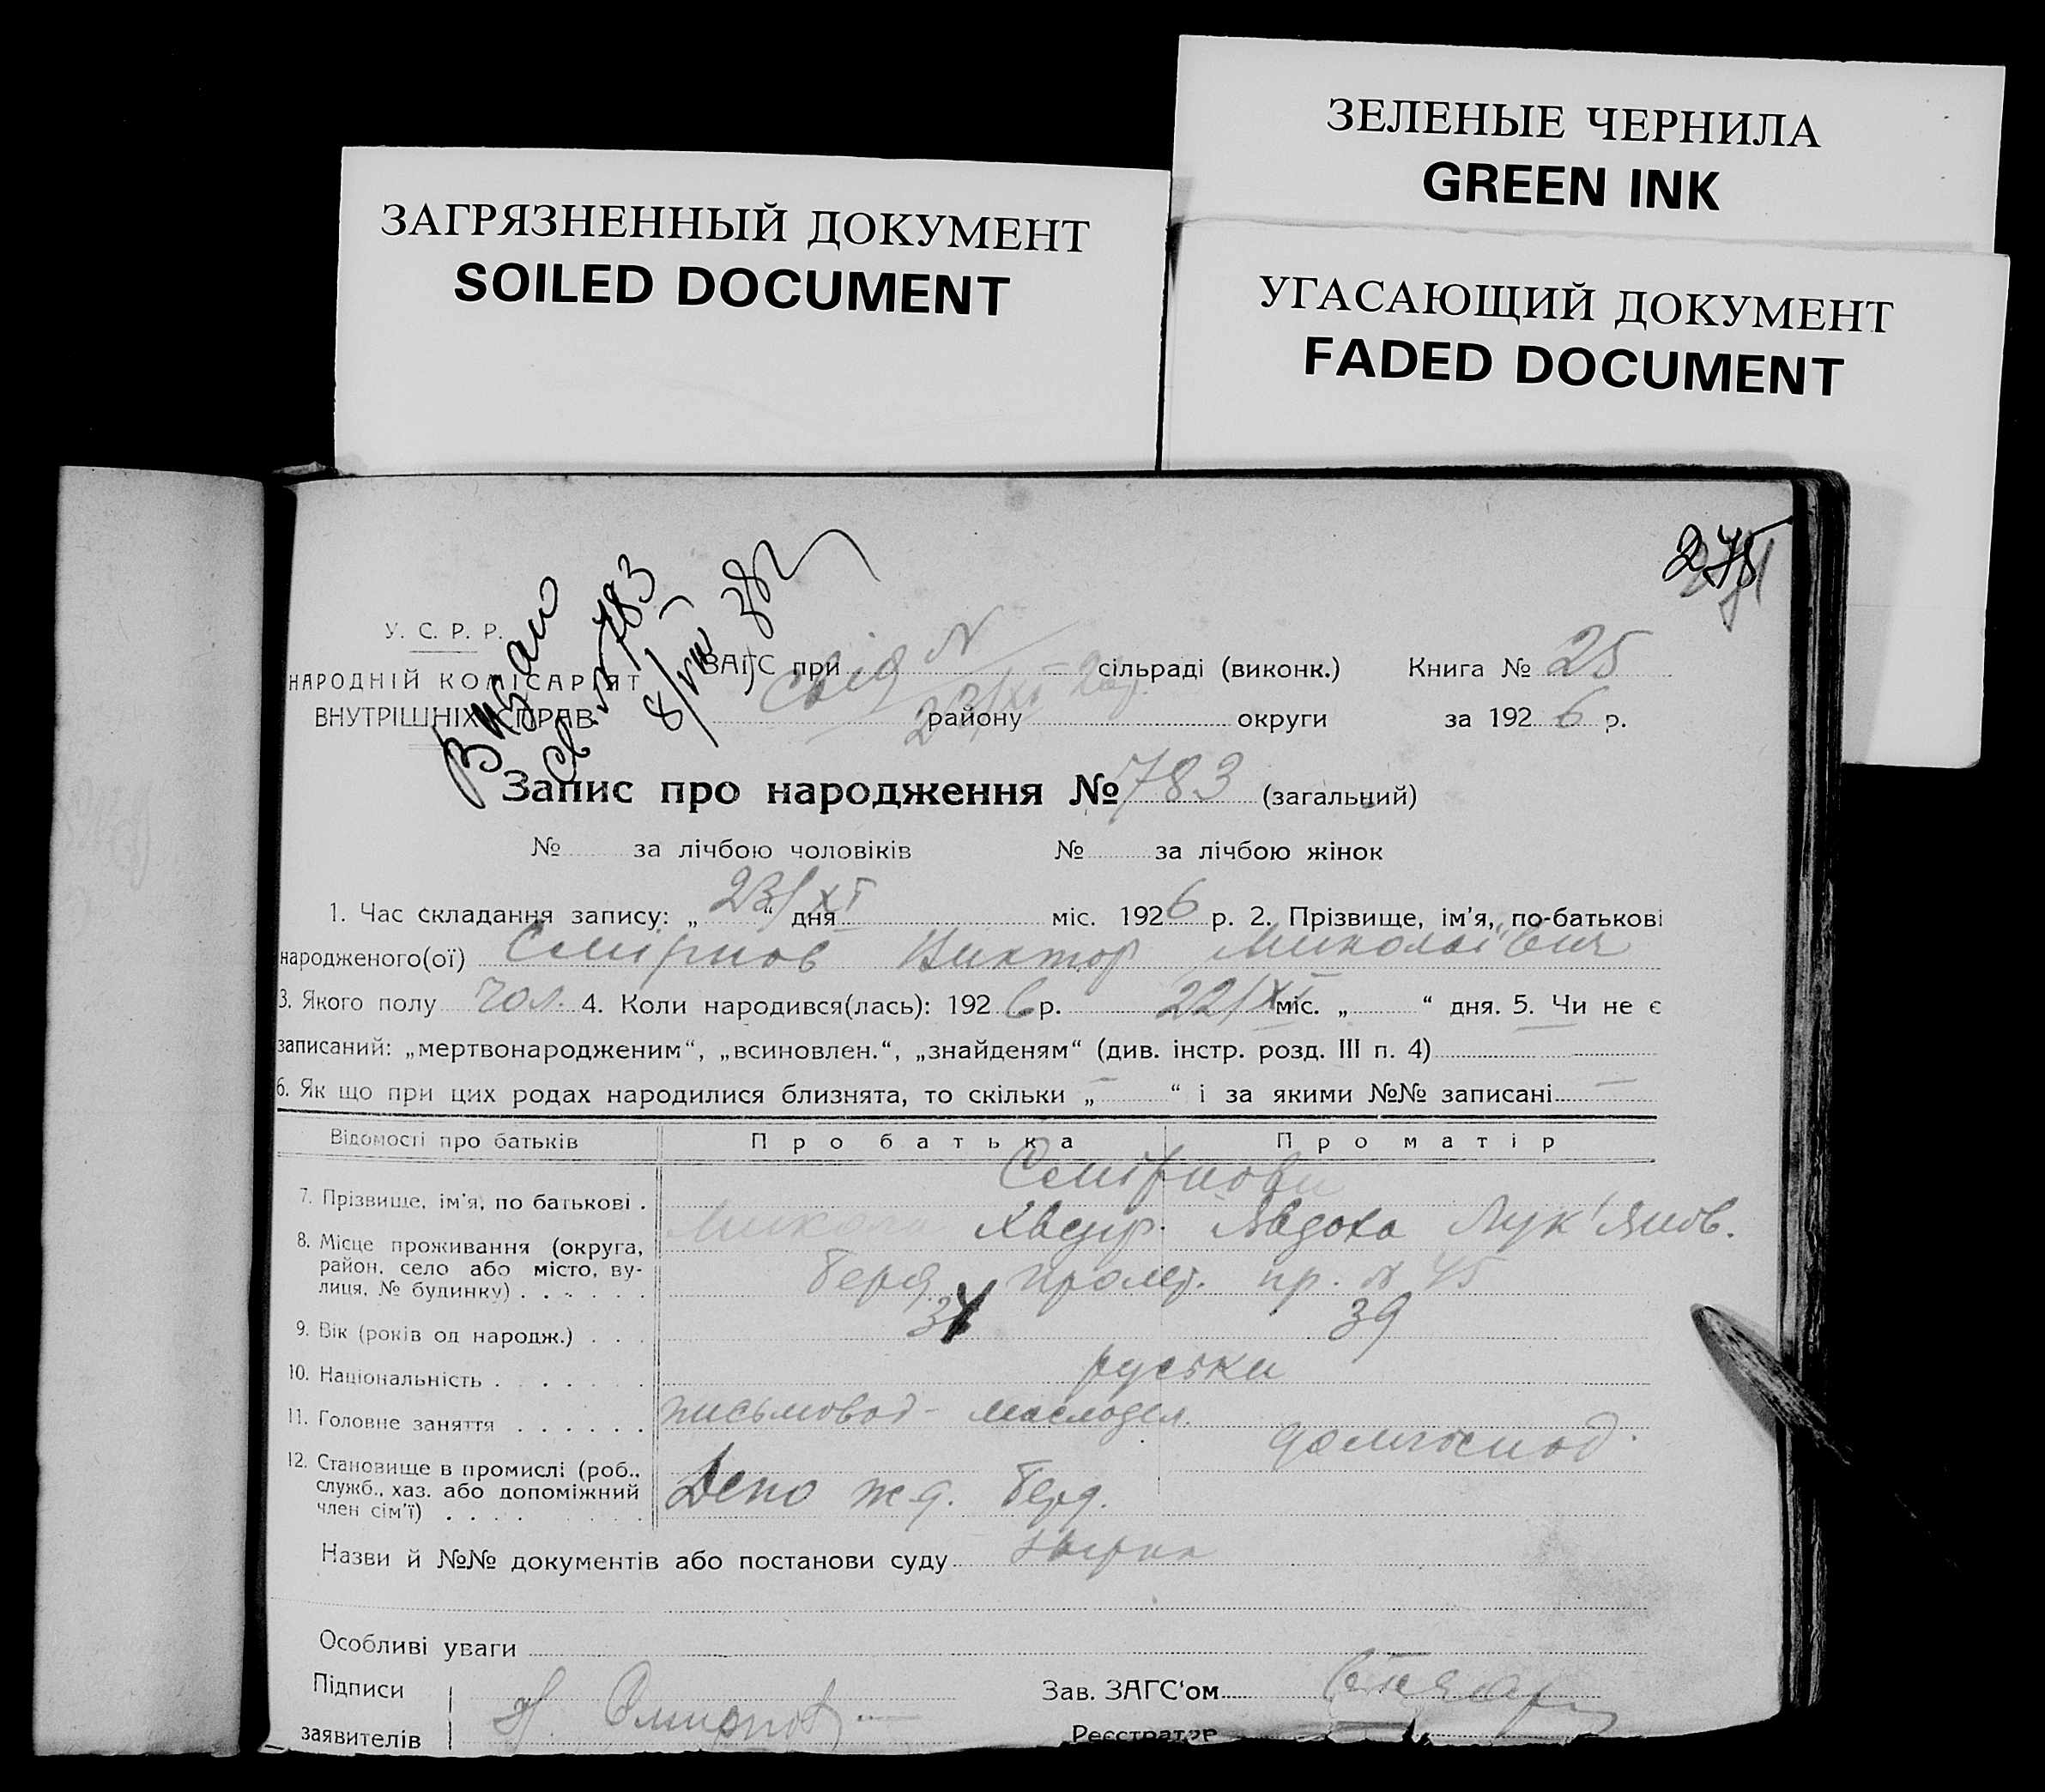 ЗЕЛЕНЫЕ ЧЕРНИЛА
GREEN INK
ЗАГРЯЗНЕННЫЙ ДОКУМЕНТ
SOILED DOCUMENT
УГАСАЮЩИЙ ДОКУМЕНТ
FADED DOCUMENT
275
Видано
св. № 783
8/VIII 38
У. С. Р. Р.
НАРОДНІЙ КОМІСАРІЯТ
ВНУТРІШНІХ СПРАВ
ЗАГС при Свід N сільраді (виконк.) Книга № 25
району 23/XI-26 округи за 1926 р.
Запис про народження № 783 (загальний)
№ за лічбою чоловіків № за лічбою жінок
1. Час складання запису: „23/XI“ дня міс. 1926 р. 2. Прізвище, ім'я, по-батькові
народженого(ої) Смірнов Виктор Миколаївич
3. Якого полу чол. 4. Коли народився(лась): 1926 р. 22/XI міс. „ “ дня. 5. Чи не є
записаний: „мертвонародженим“, „всиновлен.“, „знайденям“ (див. інстр. розд. III п. 4)
6. Як що при цих родах народилися близнята, то скільки „ – “ і за якими №№ записані –
Відомості про батьків Про батька Про матір
Смірнови
7. Прізвище, ім'я, по батькові . Микола Хведір. Явдоха Лук'янов.
8. Місце проживання (округа,
район, село або місто, ву-
лиця, № будинку) . . . . . . Берд. пр. № 45
9. Вік (років од народж.) . . . 34 39
10. Національність . . . . . . . руськи
11. Головне заняття . . . . . . письмовод - маслодел. домгоспод.
12. Становище в промислі (роб.,
служб., хаз. або допоміжний
член сім'ї) . . . . Депо ж.д. Берд.
Назви й №№ документів або постанови суду
Особливі уваги
Підписи Зав. ЗАГС'ом
заявителів Н. Смирнов Реєстратор